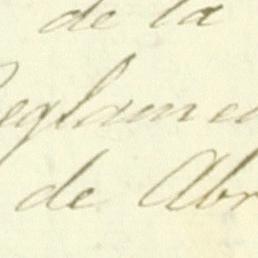 de la
Reglamen
de Abr